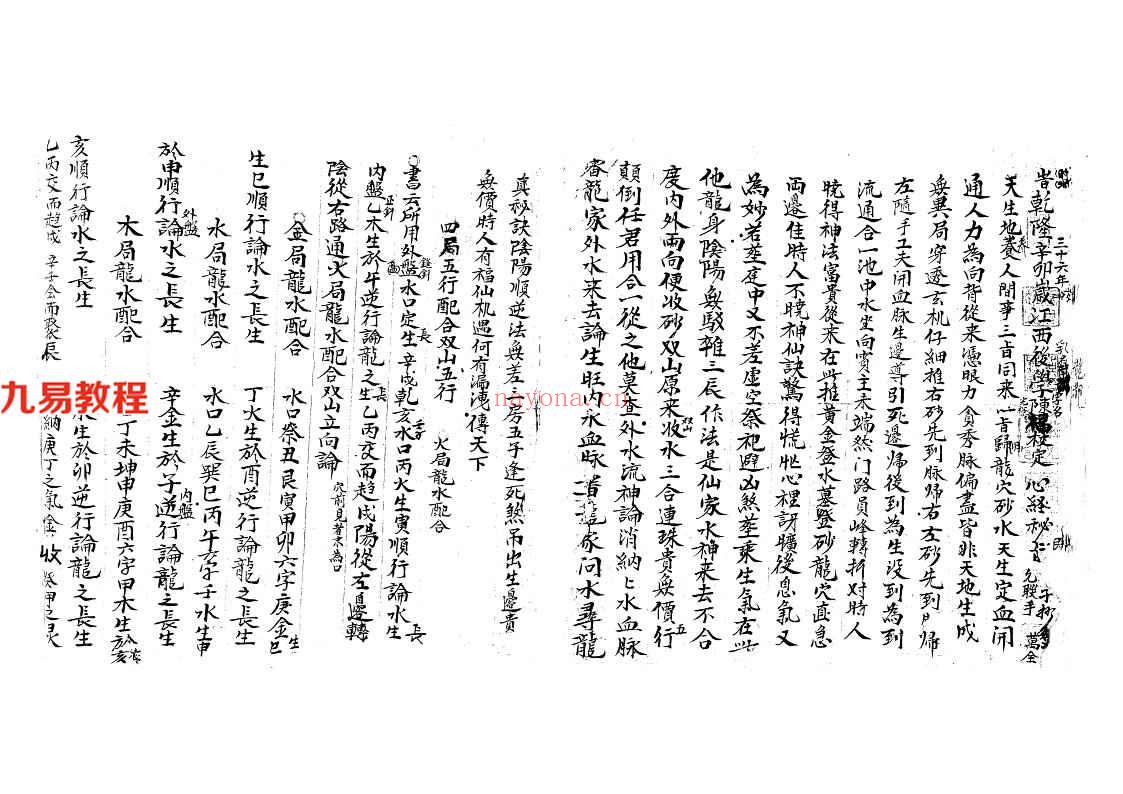 乾隆辛卯歲江西後學陳 校定 心经秘
三十六年
天生地養人間事三百同来一旨歸龍穴砂水天生定血開
通人力為向背從来憑眼力貪秀脉偏盡皆非天地生成
無異局穿透玄机仔細推右砂先到脉帰右左砂先到 帰
左隨手工夫開血脉生邊導引死邊帰後到為生没到為到
流通合一池中水坐向賓主未端然门路員峰轉折对時人
曉得神法富貴從来在此推黄金發水墓發砂龍穴直急
両邊佳時人不曉神仙訣驚得慌忙心裡訝曠後息氣又
為妙若塟庭中又不差虛空祭祀避凶煞塟乘生氣在此
他龍身陰陽無駁雜三辰作法是仙家水神来去不合
度内外両向便收砂双山原来收水三合連珠貴無價行
顛倒任君用合一從之他莫查外水流神論消納内水血脉
審龍家外水来去論生旺内水血脉 家问水尋龍
真秘訣陰陽順逆法無差 房五子逢死煞吊出生邊貴
無價時人有福仙机遇何有漏洩傳天下
四局五行配合双山五行
火局龍水配合
書云所用外盤水口定生辛戌乾亥水口丙火生寅順行論水生
内盤乙木生於午逆行論龍之生乙丙交而趋戌陽從左邊轉
陰從右路通火局龍水配合双山立向論
金局龍水配合
水口癸丑艮寅甲卯六字庚金
生巳順行論水之長生
丁火生於酉逆行論龍之長生
水局龍水配合
水口乙辰巽巳丙午六字壬水生申
外盤
於申順行論水之長生
内盤
辛金生於子逆行論龍之長生
木局龍水配合
丁未坤申庚酉六字甲木生於亥
亥順行論水之長生
水生於卯逆行論龍之長生
乙丙交而趋戌 辛壬会而聚辰
納庚丁之氣金 收癸甲之灵
九易教程
nayona.cn